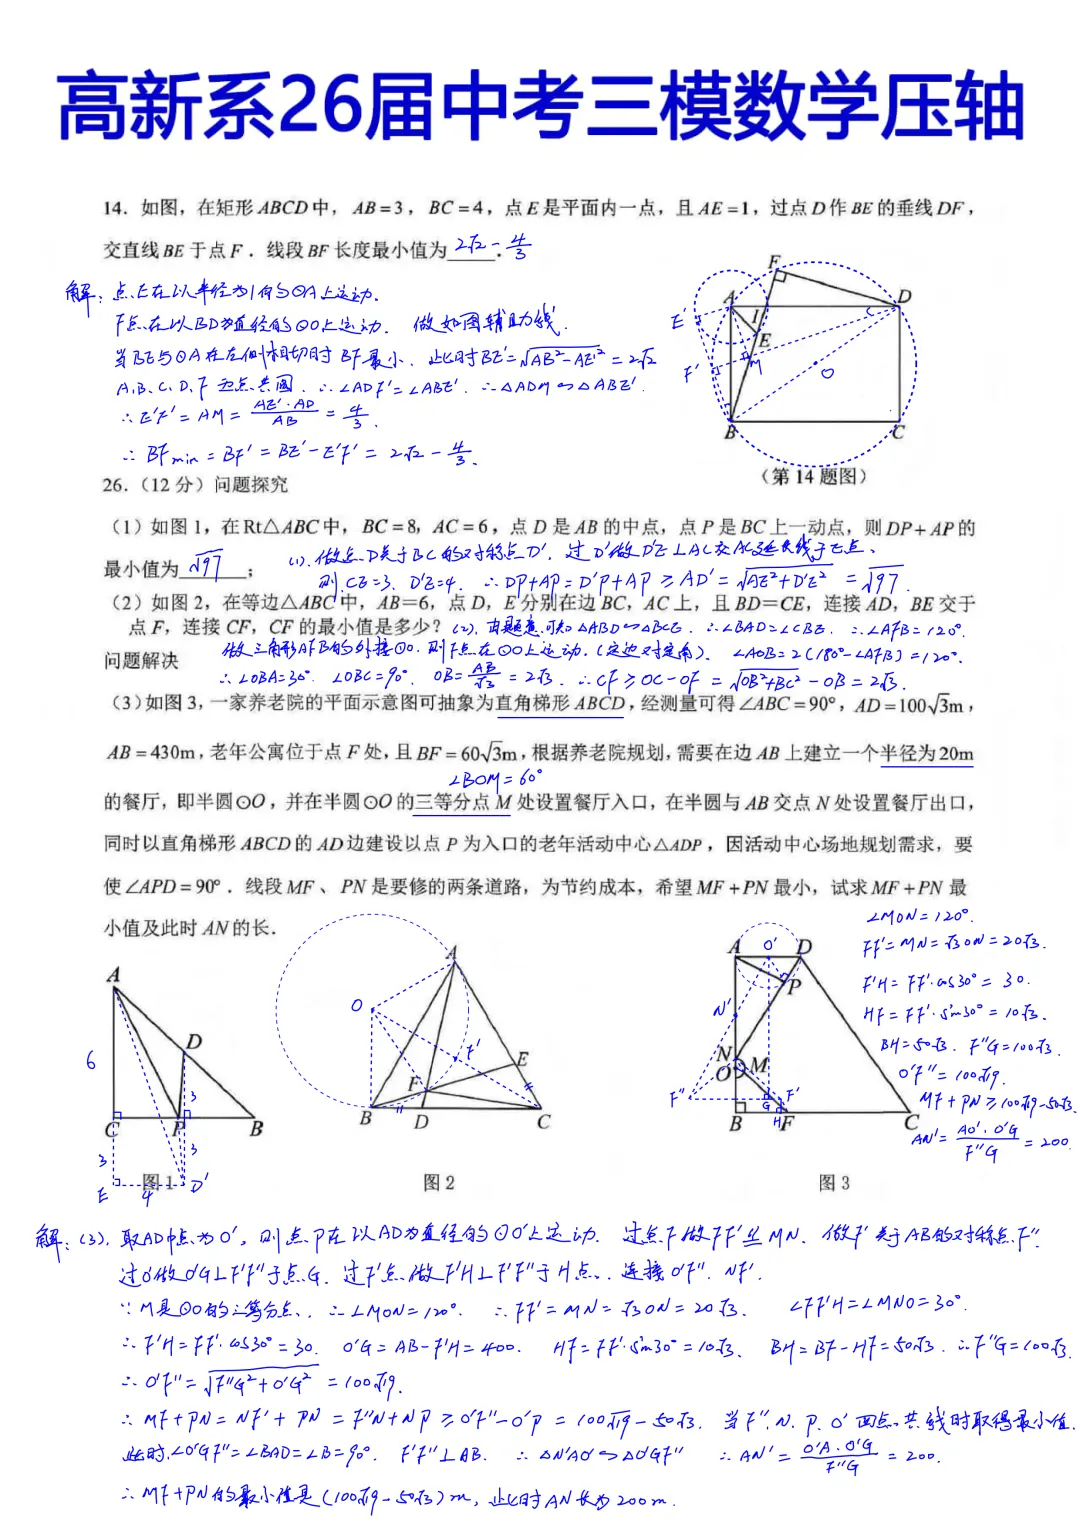 高新系26届中考三模数学压轴
14. 如图，在矩形ABCD中，AB=3，BC=4，点E是平面内一点，且AE=1，过点D作BE的垂线DF，
交直线BE于点F．线段BF长度最小值为 2√2-4/3 ．
解：点E在以A半径为1的⊙A上运动．
F点在以BD为直径的⊙O上运动． 做如图辅助线．
当BE与⊙A在左侧相切时BF最小．此时BE'=√(AB²-AE'²)=2√2
A、B、C、D、F 五点共圆．∴∠ADF'=∠ABE'．∴△ADM∽△ABE'．
∴E'F'=AM=AE'·AD/AB=4/3．
∴BFmin=BF'=BE'-E'F'=2√2-4/3．
A F D E' I E F' M O B C
（第14题图）
26.（12分）问题探究
（1）如图1，在Rt△ABC中，BC=8，AC=6，点D是AB的中点，点P是BC上一动点，则DP+AP的
最小值为 √97 ；
(1)．做点D关于BC的对称点D'．过D'做D'E⊥AC交AC延长线于E点、
则CE=3、D'E=4、∴DP+AP=D'P+AP≥AD'=√(AE²+D'E²)=√97．
（2）如图2，在等边△ABC中，AB=6，点D，E分别在边BC，AC上，且BD=CE，连接AD，BE交于
点F，连接CF，CF的最小值是多少？
(2)．由题意可知△ABD∽△BCE．∴∠BAD=∠CBE．∴∠AFB=120°．
做三角形AFB的外接⊙O．则F点在⊙O上运动．(定边对定角)、∠AOB=2(180°-∠AFB)=120°．
问题解决
∴∠OBA=30° ∠OBC=90°．OB=AB/√3=2√3．∴CF≥OC-OF=√(OB²+BC²)-OB=2√3．
（3）如图3，一家养老院的平面示意图可抽象为直角梯形ABCD，经测量可得∠ABC=90°，AD=100√3m，
AB=430m，老年公寓位于点F处，且BF=60√3m，根据养老院规划，需要在边AB上建立一个半径为20m
∠BOM=60°
的餐厅，即半圆⊙O，并在半圆⊙O的三等分点M处设置餐厅入口，在半圆与AB交点N处设置餐厅出口，
同时以直角梯形ABCD的AD边建设以点P为入口的老年活动中心△ADP，因活动中心场地规划需求，要
使∠APD=90°．线段MF、PN是要修的两条道路，为节约成本，希望MF+PN最小，试求MF+PN最
小值及此时AN的长．
A D 6 3 C P B 3 3 E 4 D'
图1
A O F' E F B D C
图2
A O' D P N' N O M F'' F' G H B F C
图3
∠MON=120°．
FF'=MN=√3ON=20√3．
F'H=FF'·cos30°=30．
HF=FF'·sin30°=10√3．
BH=50√3．F''G=100√3．
O'F''=100√19．
MF+PN≥100√19-50√3．
AN'=AO'·O'G/F''G=200．
解：(3)．取AD中点为O'，则点P在以AD为直径的⊙O'上运动． 过点F做FF'⫽MN．做F'关于AB的对称点F''．
过O'做O'G⊥F'F''于点G．过F'点做F'H⊥F'F''于H点．．连接O'F''．NF'．
∵M是⊙O的三等分点、∴∠MON=120°．∴FF'=MN=√3ON=20√3． ∠FF'H=∠MNO=30°．
∴F'H=FF'·cos30°=30． O'G=AB-F'H=400． HF=FF'·sin30°=10√3、 BH=BF-HF=50√3．∴F''G=100√3．
∴O'F''=√(F''G²+O'G²)=100√19．
∴MF+PN=NF'+PN=F''N+NP≥O'F''-O'P=100√19-50√3．当F''、N、P、O'四点共线时取得最小值．
此时．∠O'GF''=∠BAD=∠B=90°． F'F''⊥AB．∴△N'AO'∽△O'GF'' ∴AN'=O'A·O'G/F''G=200．
∴MF+PN的最小值是(100√19-50√3)m，此时AN长为200m．